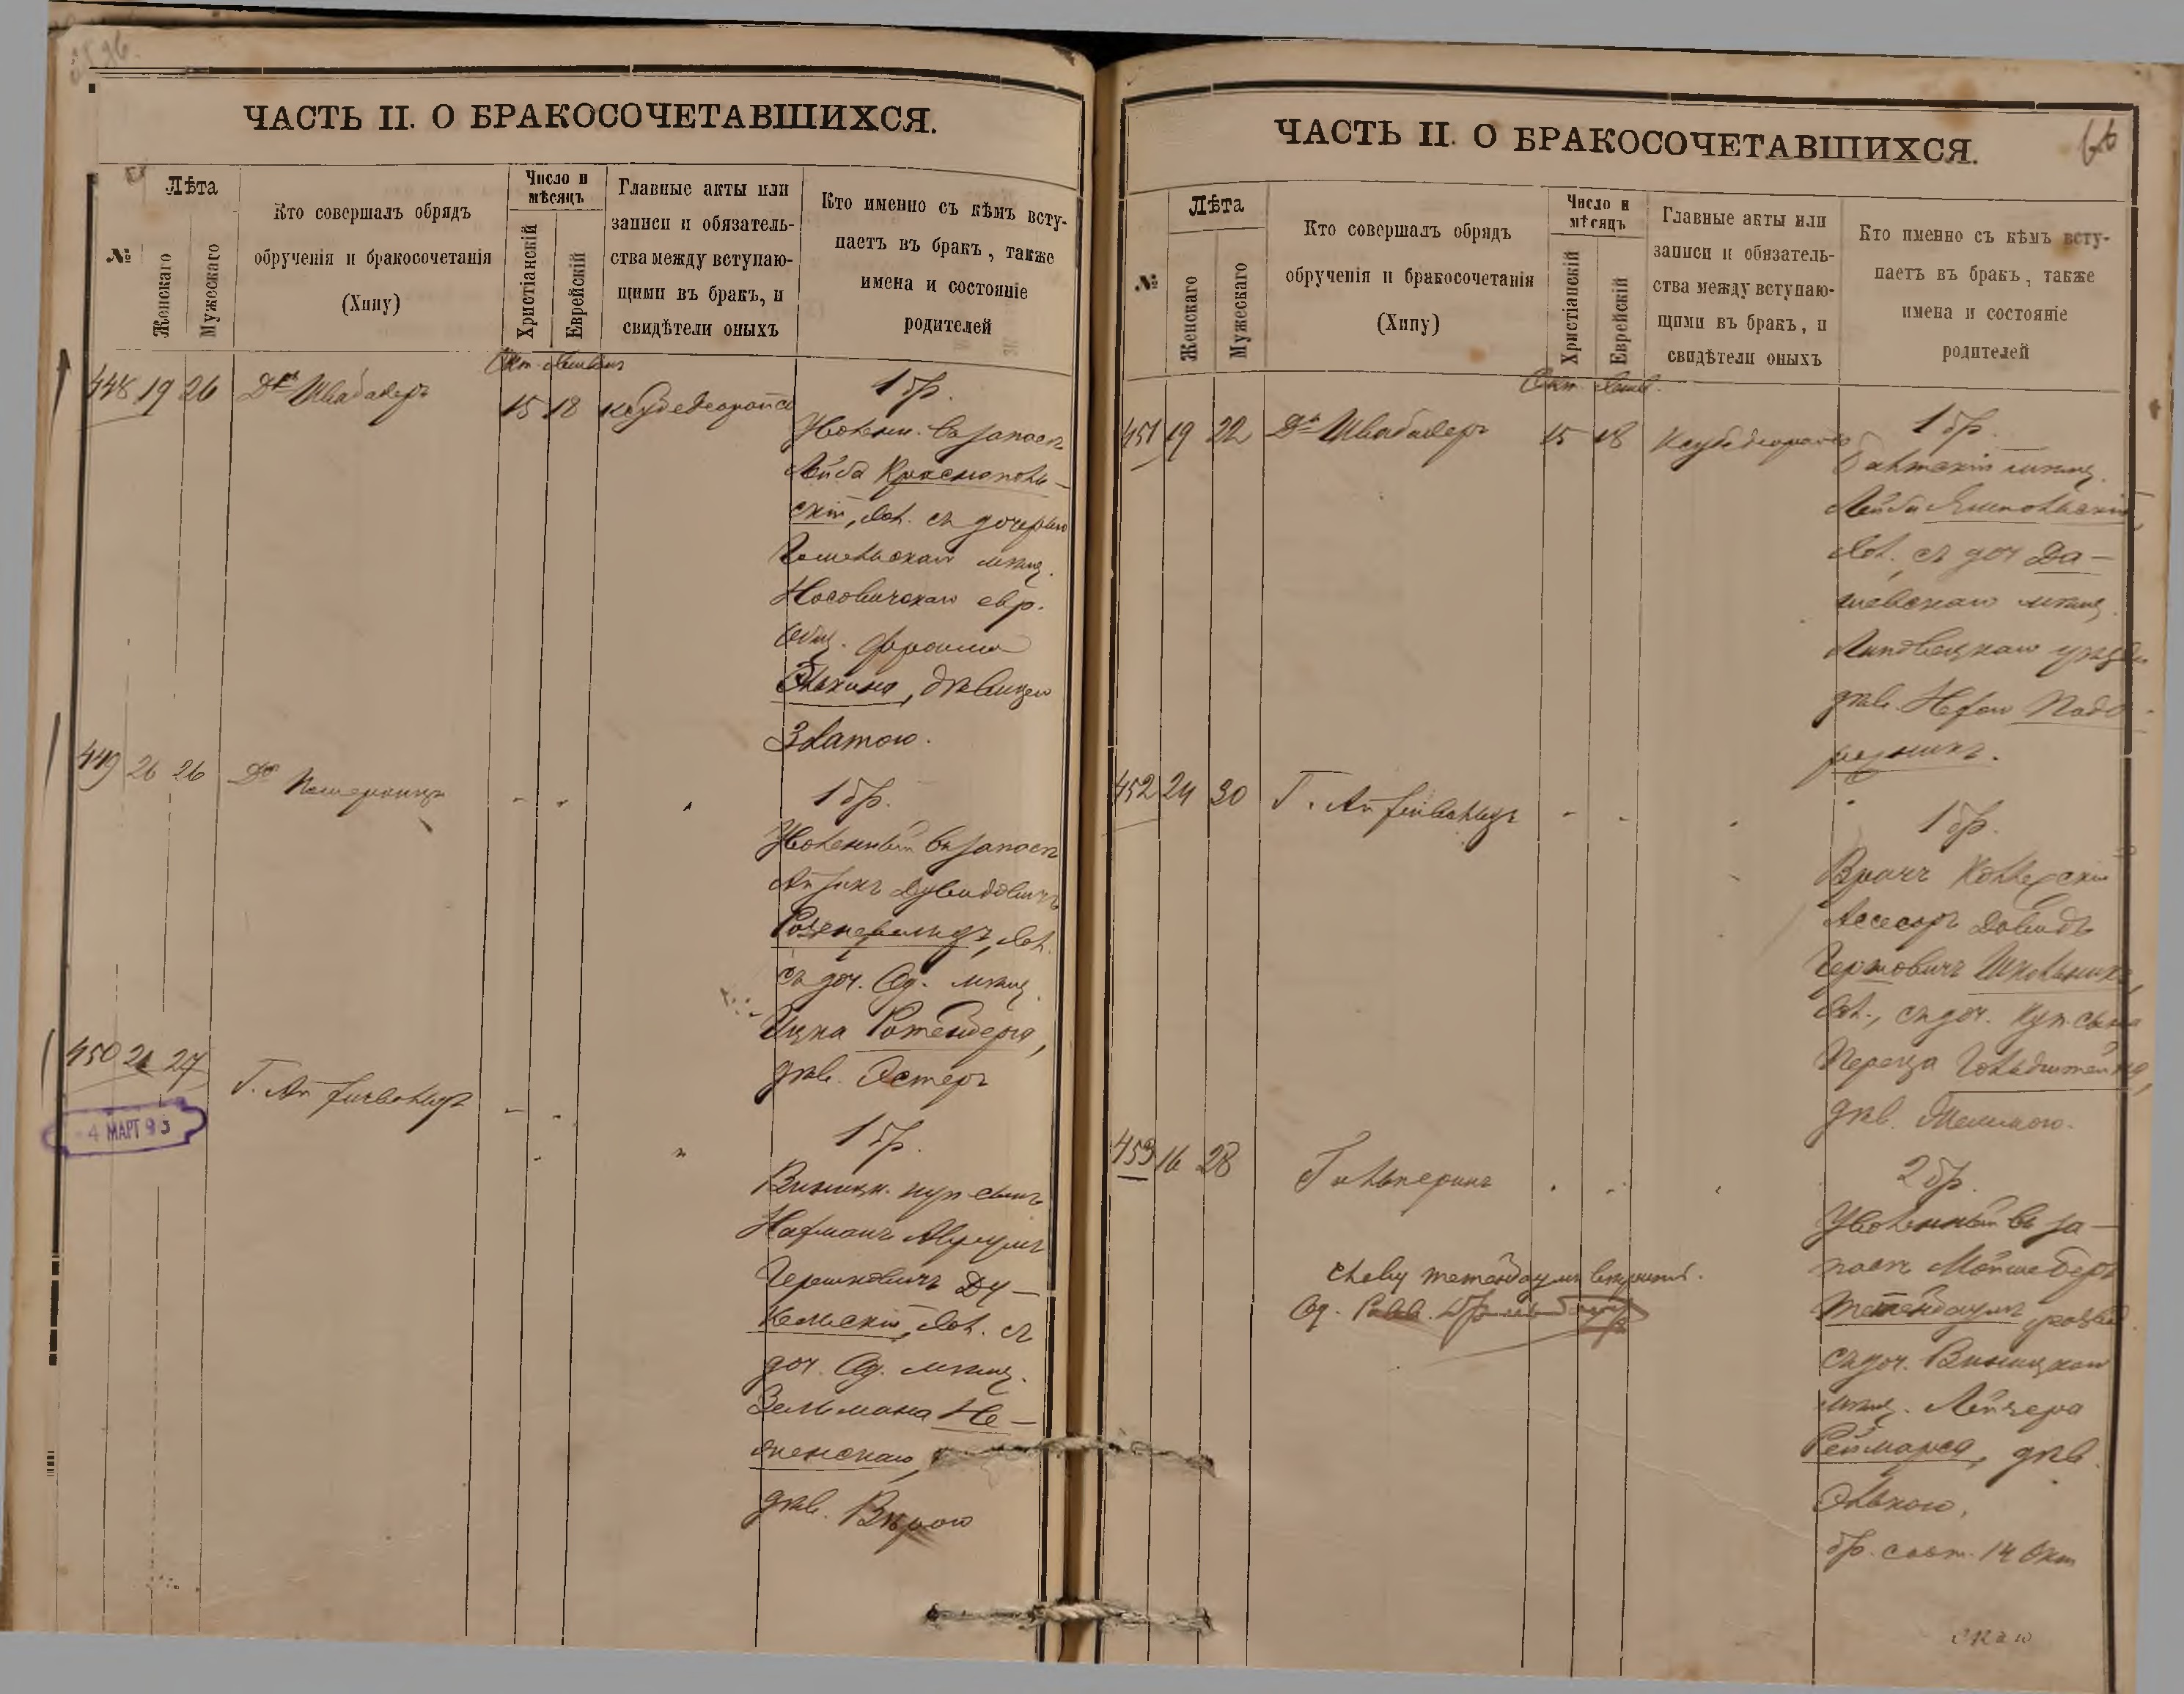 ЧАСТЬ II. О БРАКОСОЧЕТАВШИХСЯ.
№
Лѣта
Женскаго
Мужескаго
Кто совершалъ обрядъ
обрученія и бракосочетанія
(Хипу)
Число и
мѣсяцъ
Христіанскій
Еврейскій
Главные акты или
записи и обязатель-
ства между вступаю-
щими въ бракъ, и
свидѣтели оныхъ
Кто именно съ кѣмъ всту-
паетъ въ бракъ, также
имена и состояніе
родителей
448 19 26 Дръ Швабахеръ
15 18
1 бр.
Уволен. въ запасъ
Лейба Краснополь-
скій, хол. съ дочерью
Гомельскаго мѣщ.
Носовичскаго евр.
общ. Фроима
Элькина, дѣвицею
Златою.
449 26 26 Дръ Померанцъ
1 бр.
Уволенный въ запасъ
Айзикъ Дувидовичъ
Розенфельдъ, хол.
съ доч. Од. мѣщ.
Ицка Ротенберга,
дѣв. Эстеръ
450 21 27 Г. Айзенвольцъ
- 4 МАРТ 93
1 бр.
Виницк. куп. сынъ
Нахманъ Аврумъ
Гершковичъ Ду-
кельскій, хол. съ
доч. Од. мѣщ.
Зельмана Не-
женскаго,
дѣв. Вѣрою
ЧАСТЬ II. О БРАКОСОЧЕТАВШИХСЯ.
66
№
Лѣта
Женскаго
Мужескаго
Кто совершалъ обрядъ
обрученія и бракосочетанія
(Хипу)
Число и
мѣсяцъ
Христіанскій
Еврейскій
Главные акты или
записи и обязатель-
ства между вступаю-
щими въ бракъ, и
свидѣтели оныхъ
Кто именно съ кѣмъ всту-
паетъ въ бракъ, также
имена и состояніе
родителей
451 19 22 Дръ Швабахеръ
15 18
1 бр.
Балтскій мѣщ.
Лейба Ямпольскій,
хол. съ доч. Да-
шевскаго мѣщ.
Липовецкаго уѣзда
дѣв.
452 24 30 Г. Айзенвольцъ
1 бр.
Врачъ Коллежскій
Ассесоръ Давидъ
Герцовичъ Школьникъ,
хол., съ доч. куп. сына
Переца Гольдштейна,
дѣв.
453 16 28 Гальперинъ
2 бр.
Уволенный въ за-
пасъ Мойше Беръ
Тетенбаумъ, развед.
съ доч. Виницкаго
мѣщ. Лейзера
Реймарса, дѣв.
Элькою,
бр. сост. 14 Окт
Слову Тетенбаумъ вѣрить.
Од. Равв.